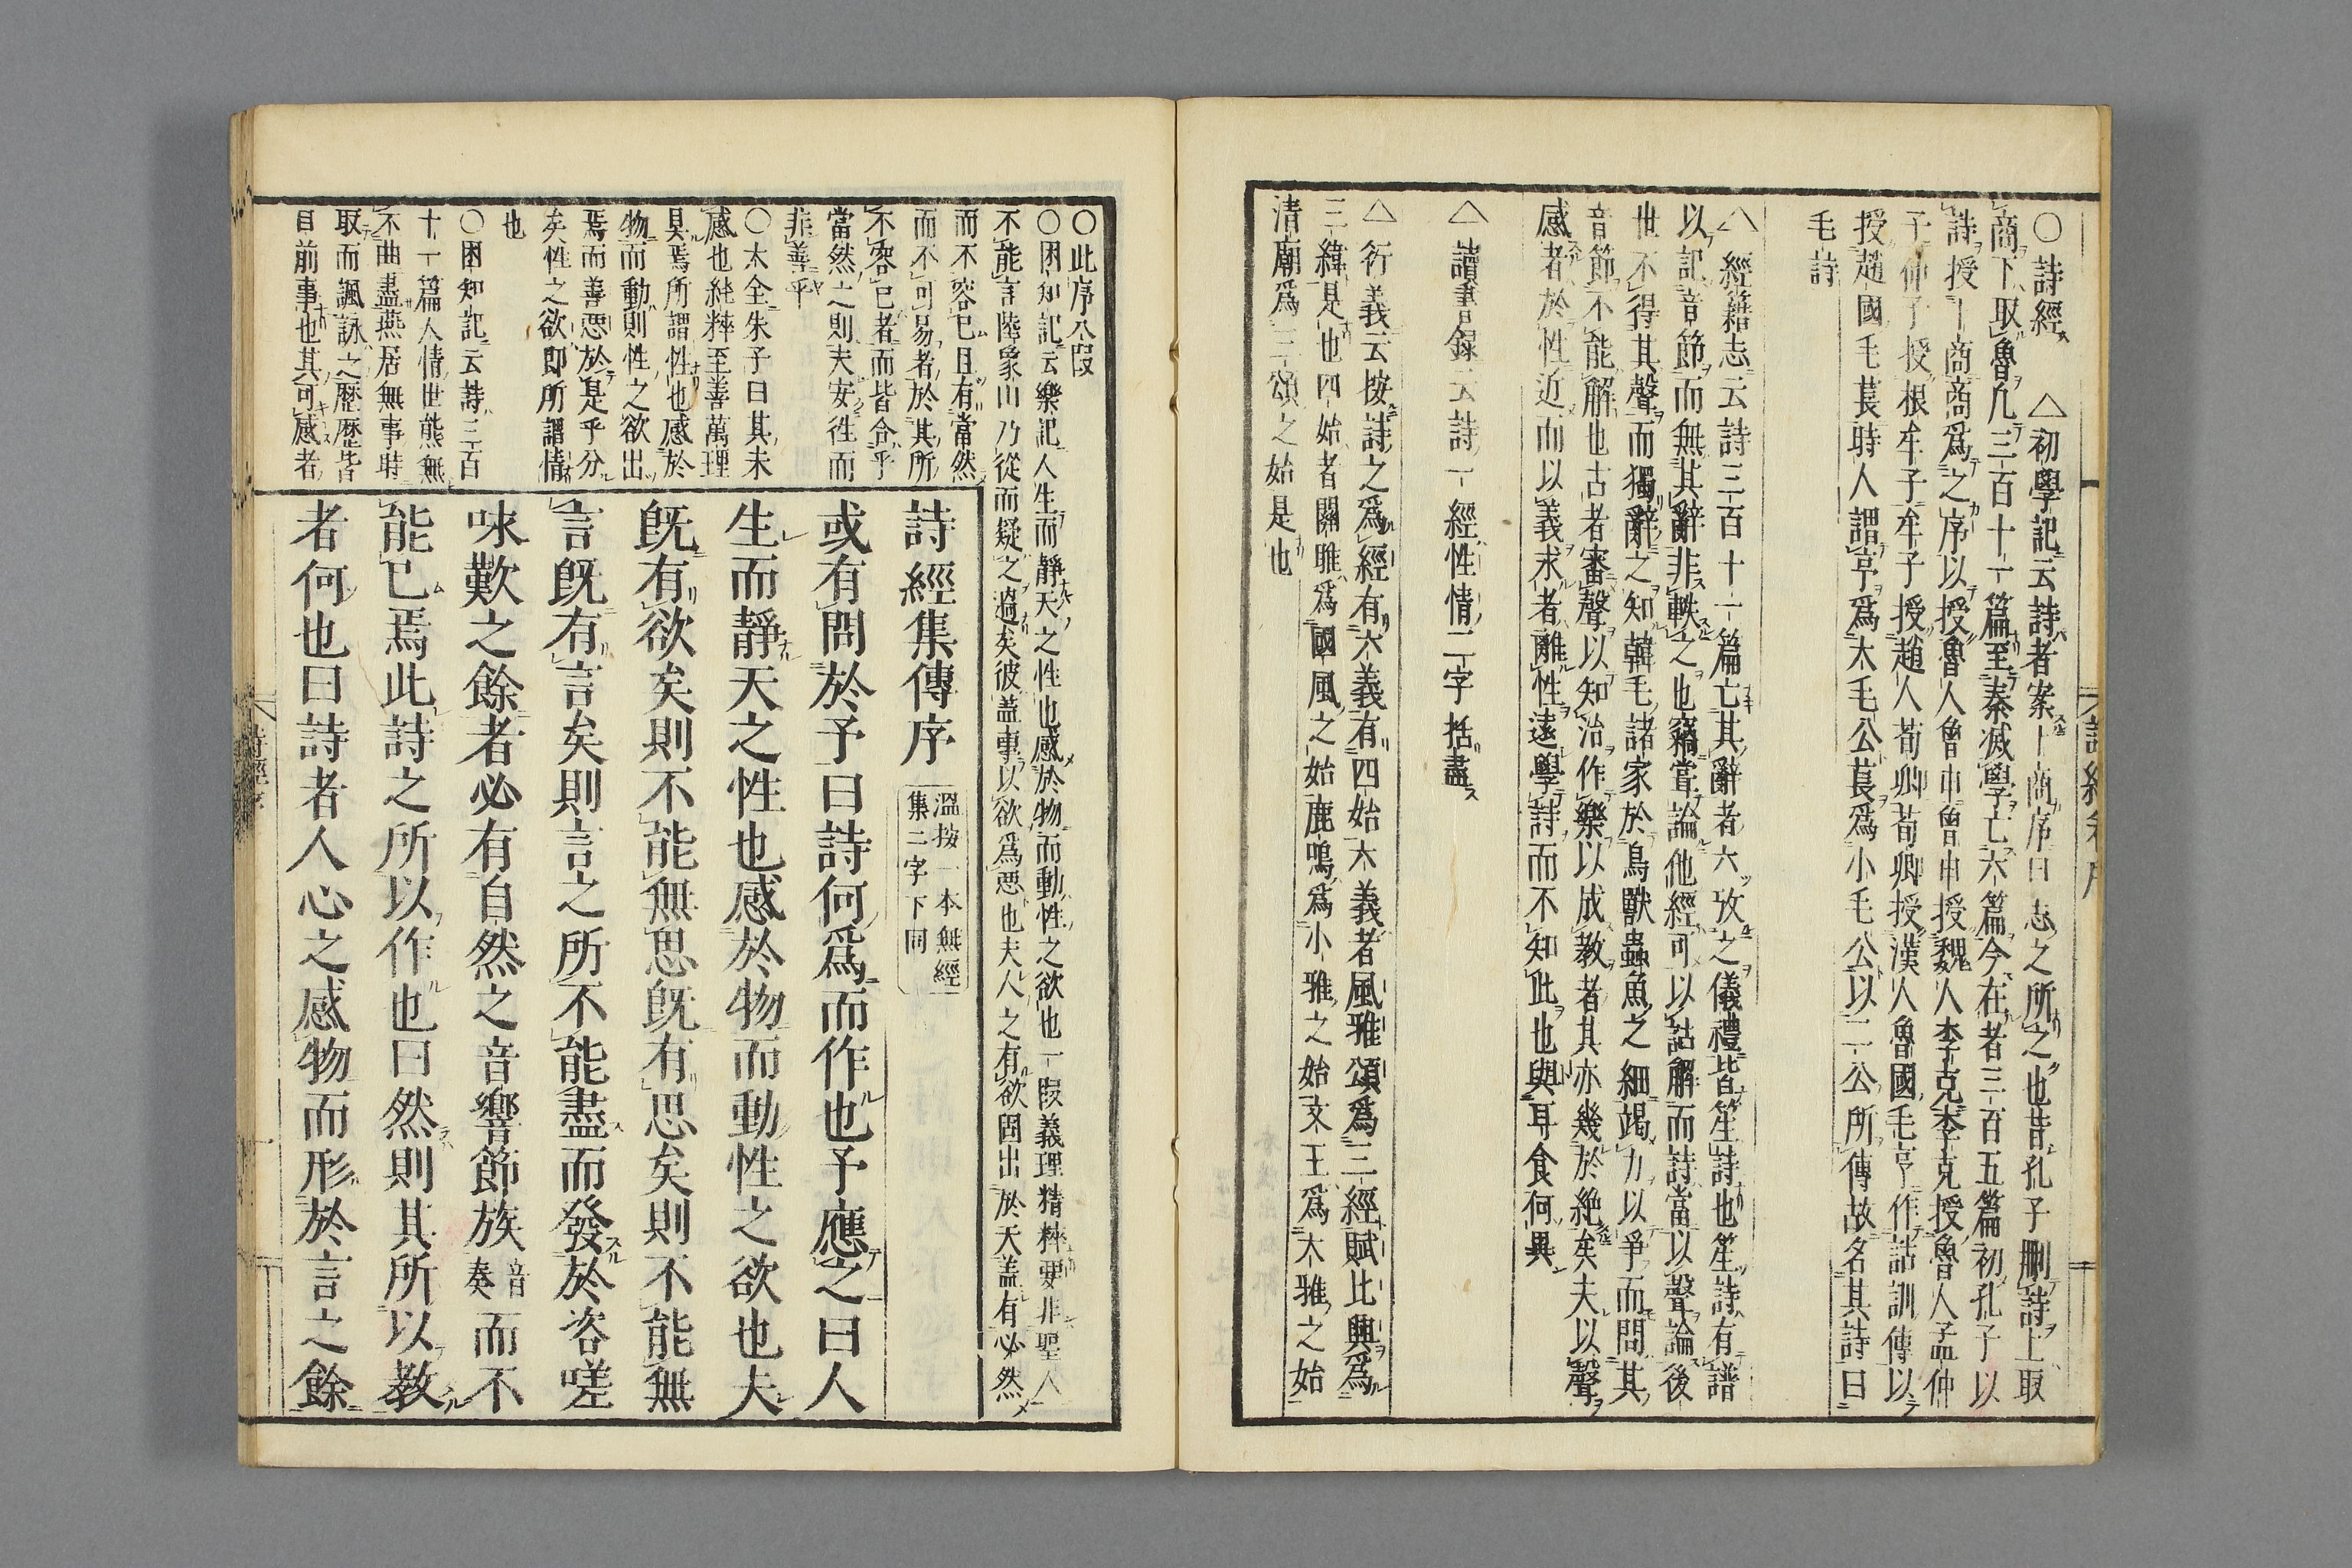 ○詩經 △初學記云詩者案卜商序曰志之所之也昔孔子刪詩上取
商下取魯凡三百十一篇至秦滅學亡六篇今在者三百五篇初孔子以
詩授卜商商爲之序以授魯人曾申曾申授魏人李克李克授魯人孟仲
子仲子授根牟子牟子授趙人荀卿荀卿授漢人魯國毛亨作詁訓傳以
授趙國毛萇時人謂亨爲大毛公萇爲小毛公以二公所傳故名其詩曰
毛詩
△經籍志云詩三百十一篇亡其辭者六攷之儀禮皆笙詩也笙詩有譜
以記音節而無其辭非軼之也竊嘗論他經可以詁解而詩當以聲論後
世不得其聲而獨辭之知韓毛諸家於鳥獸蟲魚之細竭力以爭而問其
音節不能解也古者審聲以知治作樂以成教者其亦幾於絶矣夫以聲
感者於性近而以義求者離性遠學詩而不知此也與耳食何異
△讀書録云詩一經性情二字括盡
△衍義云按詩之爲經有六義有四始六義者風雅頌爲三經賦比興爲
三緯是也四始者關雎爲國風之始鹿鳴爲小雅之始文王爲大雅之始
清廟爲三頌之始是也
詩經
○此序八段
○困知記云樂記人生而靜天之性也感於物而動性之欲也一段義理精粹要非聖人
不能言陸象山乃從而疑之過矣彼蓋專以欲爲惡也夫人之有欲固出於天蓋有必然
而不容已且有當然
而不可易者於其所
不容已者而皆合乎
當然之則夫安往而
非善乎
○大全朱子曰其未
感也純粹至善萬理
具焉所謂性也感於
物而動則性之欲出
焉而善惡於是乎分
矣性之欲即所謂情
也
○困知記云詩三百
十一篇人情世態無
不曲盡燕居無事時
取而諷詠之歷歷皆
目前事也其可感者
詩經集傳序
溫按一本無經
集二字下同
或有問於予曰詩何爲而作也予應之曰人
生而靜天之性也感於物而動性之欲也夫
既有欲矣則不能無思既有思矣則不能無
言既有言矣則言之所不能盡而發於咨嗟
咏歎之餘者必有自然之音響節族音奏而不
能已焉此詩之所以作也曰然則其所以教
者何也曰詩者人心之感物而形於言之餘
詩經序